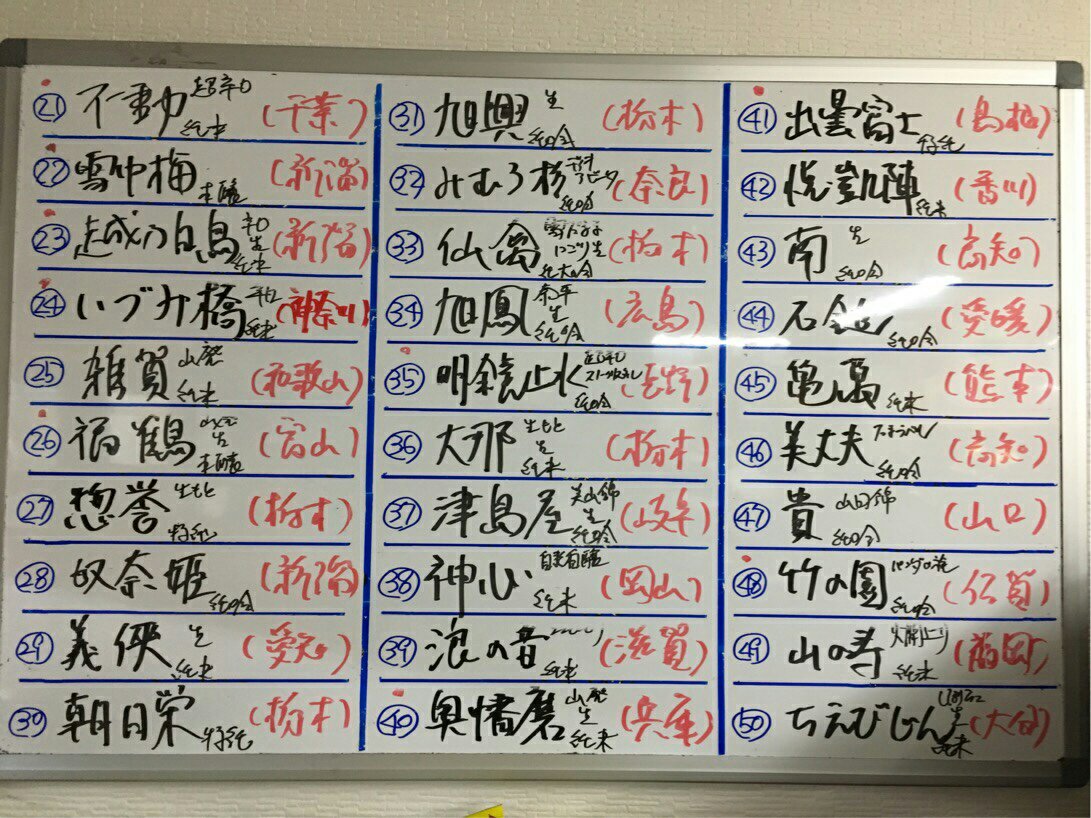 ㉑ 不動 超辛口 純米 (千葉)
㉒ 雪中梅 本醸 (新潟)
㉓ 越乃白鳥 辛口 生 純米 (新潟)
㉔ いづみ橋 辛口 純米 (神奈川)
㉕ 雑賀 山廃 純米 (和歌山)
㉖ 福鶴 生 本醸 (富山)
㉗ 惣誉 生もと 特純 (栃木)
㉘ 奴奈姫 純吟 (新潟)
㉙ 義侠 生 純米 (愛知)
㉚ 朝日栄 特純 (栃木)
㉛ 旭興 生 純吟 (栃木)
㉜ みむろ杉 純吟 (奈良)
㉝ 仙禽 にごり生 純大吟 (栃木)
㉞ 旭鳳 生 純吟 (広島)
㉟ 明鏡止水 純吟 (長野)
㊱ 大那 生もと 生 純米 (栃木)
㊲ 津島屋 美山錦 生 純吟 (岐阜)
㊳ 神心 純米 (岡山)
㊴ 浪の音 純米 (滋賀)
㊵ 奥播磨 山廃 生 純米 (兵庫)
㊶ 出雲富士 特純 (島根)
㊷ 悦凱陣 純米 (香川)
㊸ 南 生 純吟 (高知)
㊹ 石鎚 純吟 (愛媛)
㊺ 亀萬 純米 (熊本)
㊻ 美丈夫 純吟 (高知)
㊼ 貴 山田錦 純吟 (山口)
㊽ 竹の園 純吟 (佐賀)
㊾ 山の寿 純米 (福岡)
㊿ ちえびじん 純米 (大分)